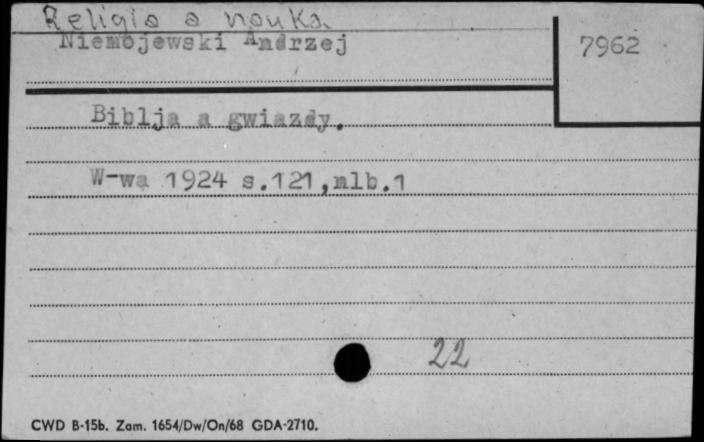 Religia a nauka
Niemojewski Andrzej
7962
Biblja a gwiazdy.
W-wa 1924 s.121,nlb.1
22
CWD B-15b. Zam. 1654/Dw/On/68 GDA-2710.